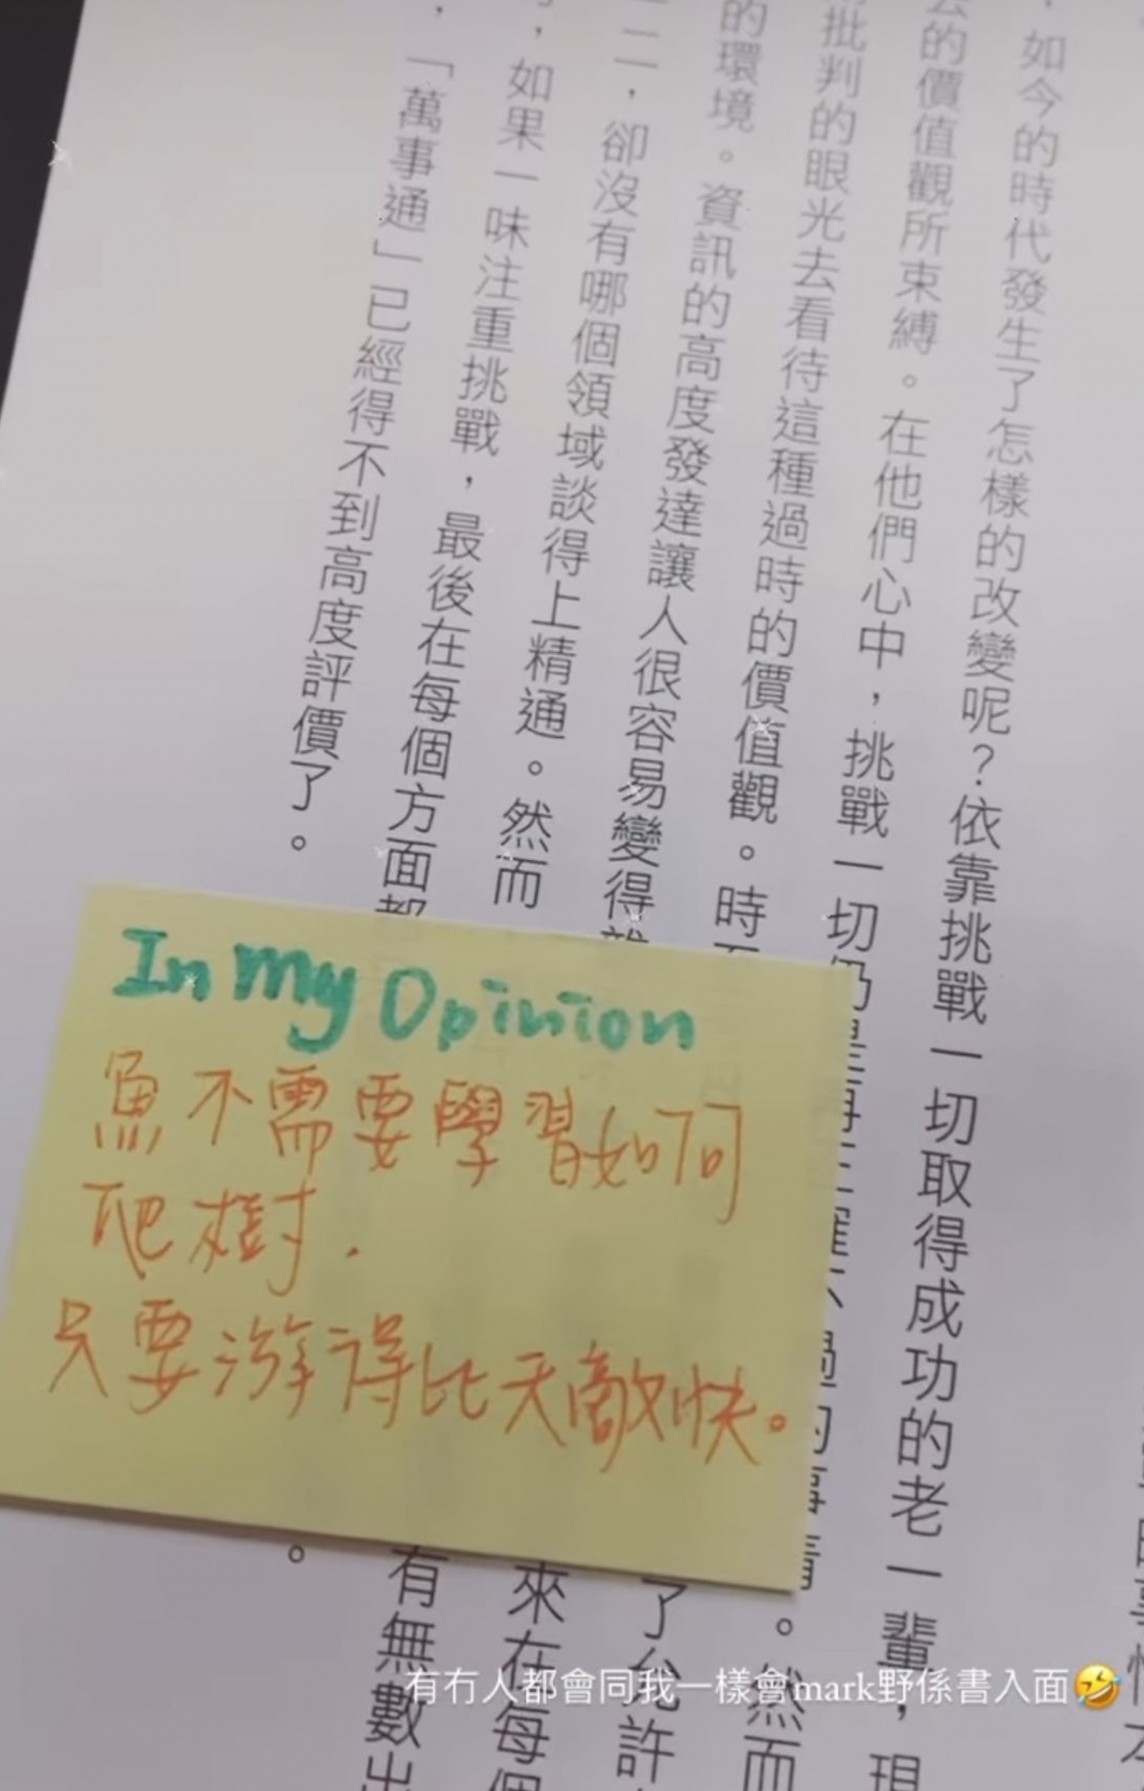 ，如今的時代發生了怎樣的改變呢？依靠挑戰一切取得成功的老一輩，現
的價值觀所束縛。在他們心中，挑戰一切仍是再正確不過的事情。然而
批判的眼光去看待這種過時的價值觀。時 了允許
的環境。資訊的高度發達讓人很容易變得 來在每個
一二，卻沒有哪個領域談得上精通。然而 有無數出
，如果一味注重挑戰，最後在每個方面都 。
，「萬事通」已經得不到高度評價了。
In my Opinion
魚不需要學習如何
爬樹．
只要游得比天敵快。
有冇人都會同我一樣會mark野係書入面🤣